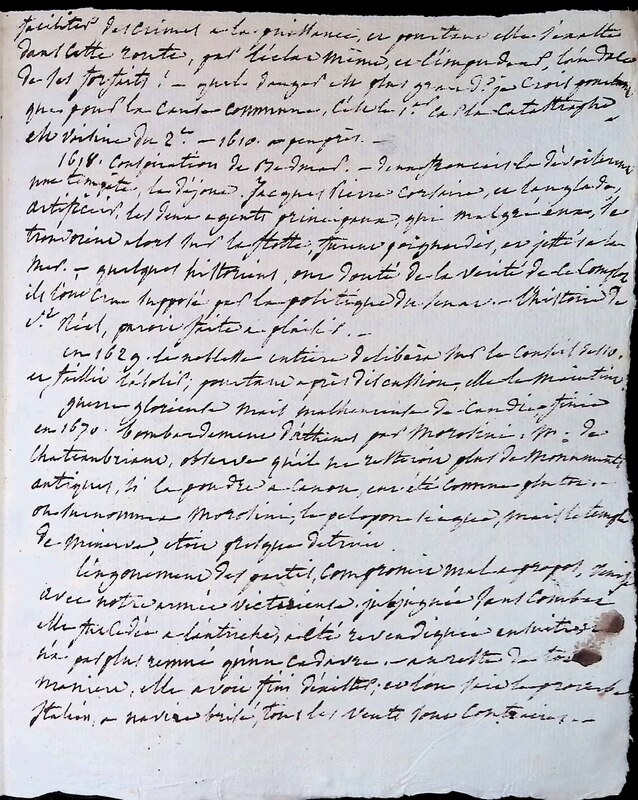 facilités des crimes a la puissance, et pourtant elle
dans cette route, par l'éclat même, et l'impudent scandale
de ses forfaits! - quel danger est plus grand? je crois pourtant
que pour la cause commune, c'est le 1er car la catastrophe
est voisine du 2e - 1610. a peu près. -
1618. Conspiration de Bedmar. - deux français la dévoilèrent
une tempête, la déjoua. Jacques Pierre corsaire, et Langlade,
artificier, les deux agents principaux, qui malgré eux, se
trouvoient alors sur la flotte, furent poignardés, et jettés a la
mer. - quelques historiens, ont douté de la vérité de ce complot
ils l'ont cru supposé par la politique du senat. - l'histoire de
St Réal, paroit faite a plaisir. -
en 1629. la noblesse entiere délibéra sur le conseil des 10.
et faillit l'abolir; pourtant après discussion, elle le maintint
guerre glorieuse mais malheureuse de Candie, finie
en 1670. bombardement d'athènes par Morosini. Mr. de
Chateaubriant, observe qu'il ne resteroit plus de monuments
antiques, si la poudre a canon, eut été connue plutot. -
on surnomma Morosini, le peloponésiaque, mais le temple
de Minerve, étoit presque détruit.
l'engouement des partis, compromit mal a propos, Venise
avec notre armée victorieuse. subjuguée sans combat
elle fut cédée a l'autriche, a été revendiquée ensuite et
n'a pas plus remué qu'un cadavre. - au reste de toute
maniere, elle avoit fini d'exister; et l'on sait le proverbe
Italien, a navire brisé, tous les vents sont contraires. -